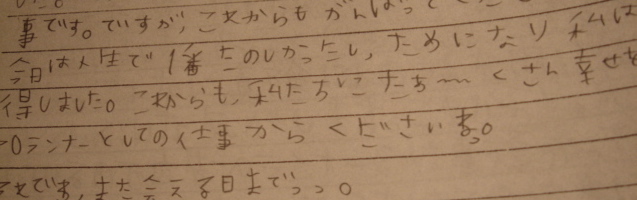 した。
事です。ですが、これからもがんばって
今日は人生で1番たのしかったし、ためになり私は
得しました。これからも、私たちにたぁ〜くさん幸せを
プロランナーとしての仕事からくださいねっ。
それでわ、また会える日までっっ。